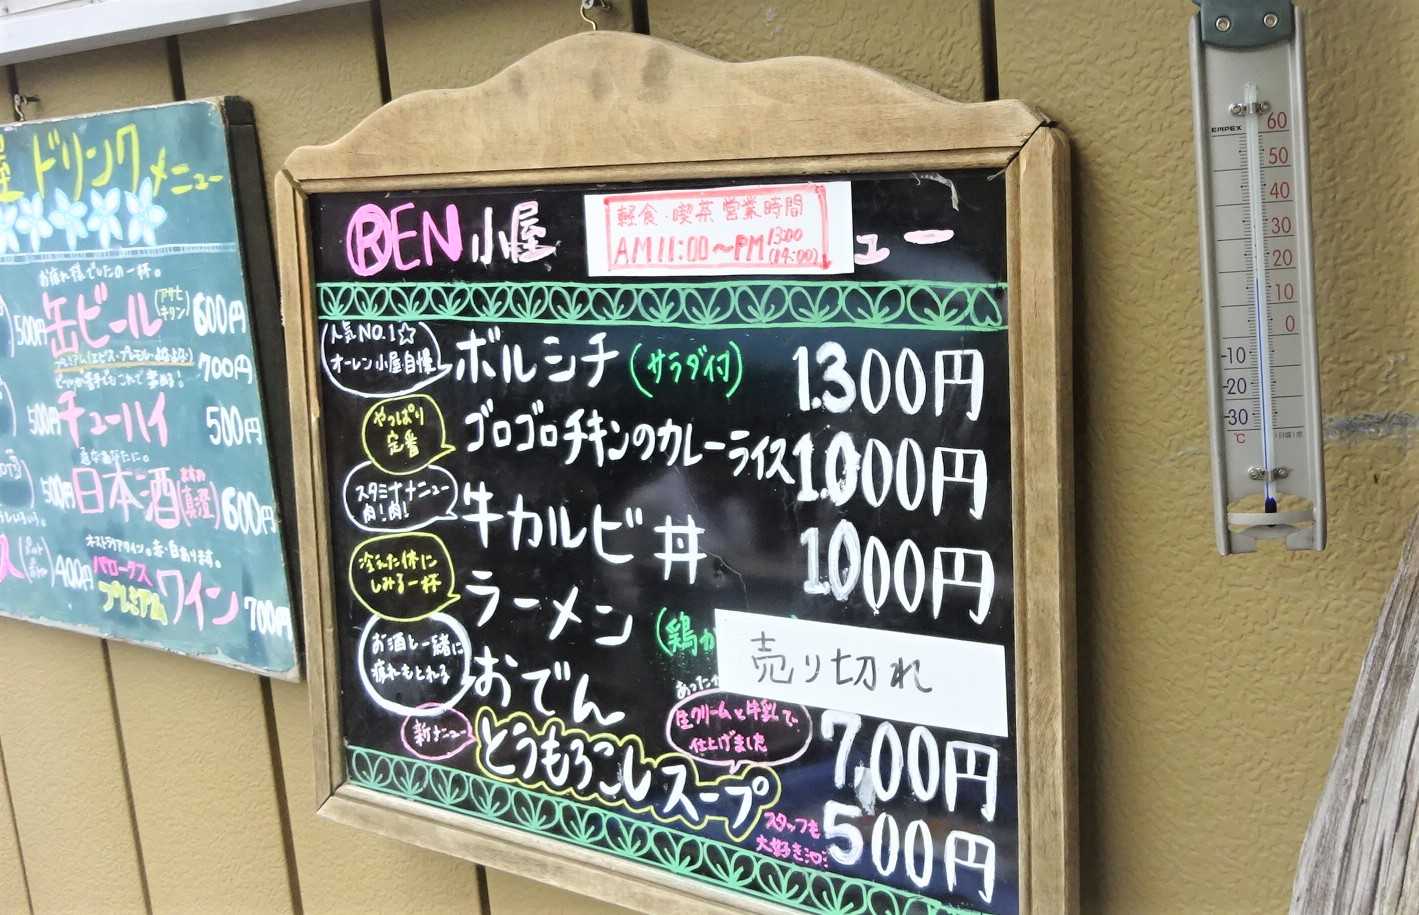 ドリンクメニュー
お疲れ様でしたの一杯。
500円 缶ビール (アサヒ キリン) 600円
700円
500円 チューハイ 500円
500円 日本酒 (真澄) 600円
オーストラリアワイン。赤・白あります。
400円 バロークス
プレミアム ワイン 700円
REN小屋 ュー
軽食・喫茶 営業時間
AM11:00〜PM 13:00
(14:00)
人気NO.1☆
オーレン小屋自慢
ボルシチ (サラダ付) 1.300円
やっぱり
定番
ゴロゴロチキンのカレーライス 1.000円
スタミナメニュー
肉!肉!
牛カルビ丼 1.000円
冷えた体に
しみる一杯
ラーメン (鶏が
売り切れ
お酒と一緒に
疲れもとれる
おでん あったか 700円
新メニュー
とうもろこしスープ
生クリームと牛乳で、
仕上げました
スタッフも
大好き 500円
EMPEX
60
50
40
30
20
10
0
-10
-20
-30
℃